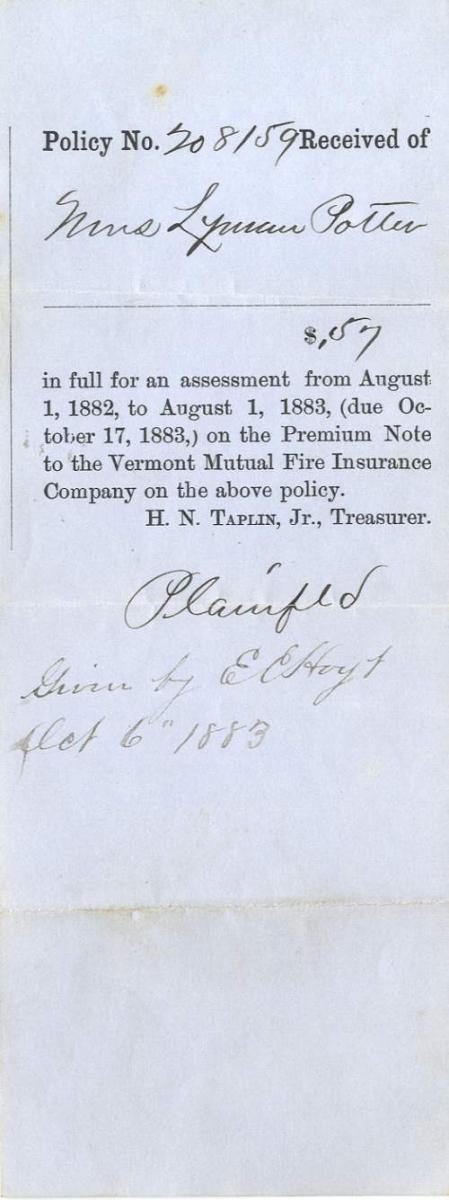 Policy No. 208159 Received of
Mrs Lyman Potter
$.57
in full for an assessment from August
1, 1882, to August 1, 1883, (due Oc-
tober 17, 1883,) on the Premium Note
to the Vermont Mutual Fire Insurance
Company on the above policy.
H. N. TAPLIN, Jr., Treasurer.
Plainfld
Given by E E Hoyt
Oct 6" 1883